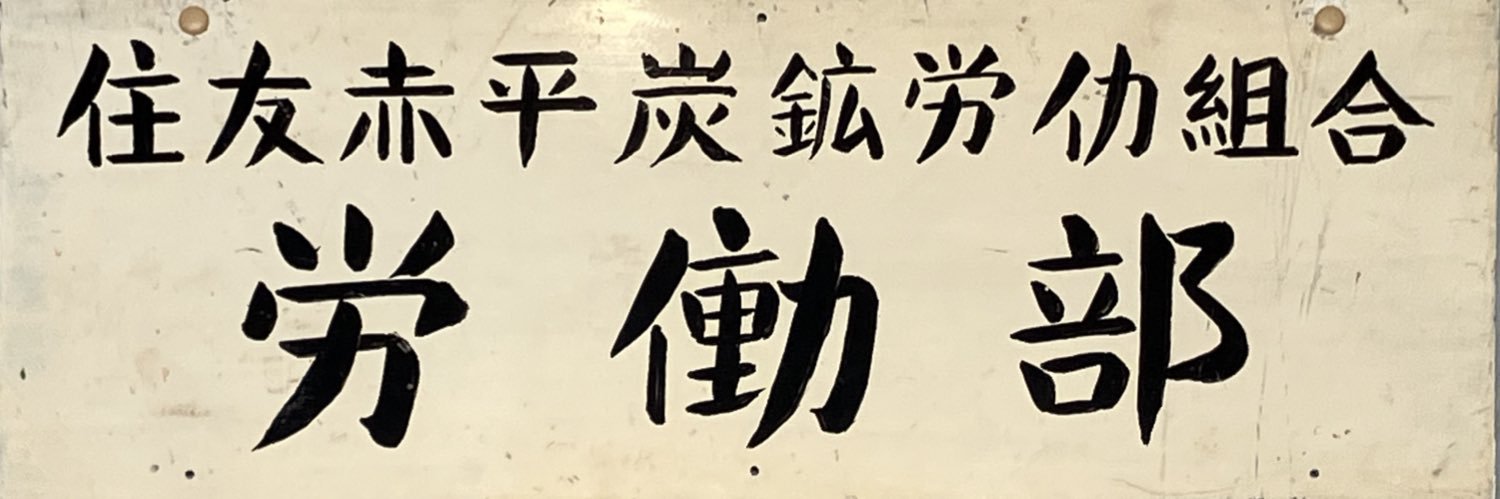 住友赤平炭鉱労仂組合
労働部